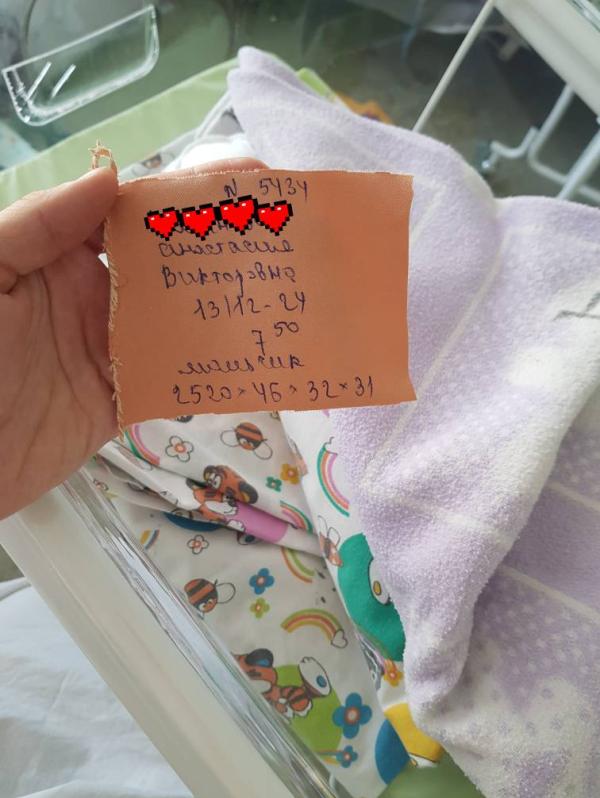 N 5434
Анастасия
Викторовна
13/12-24
7 50
мальчик
2520 × 46 × 32 × 31